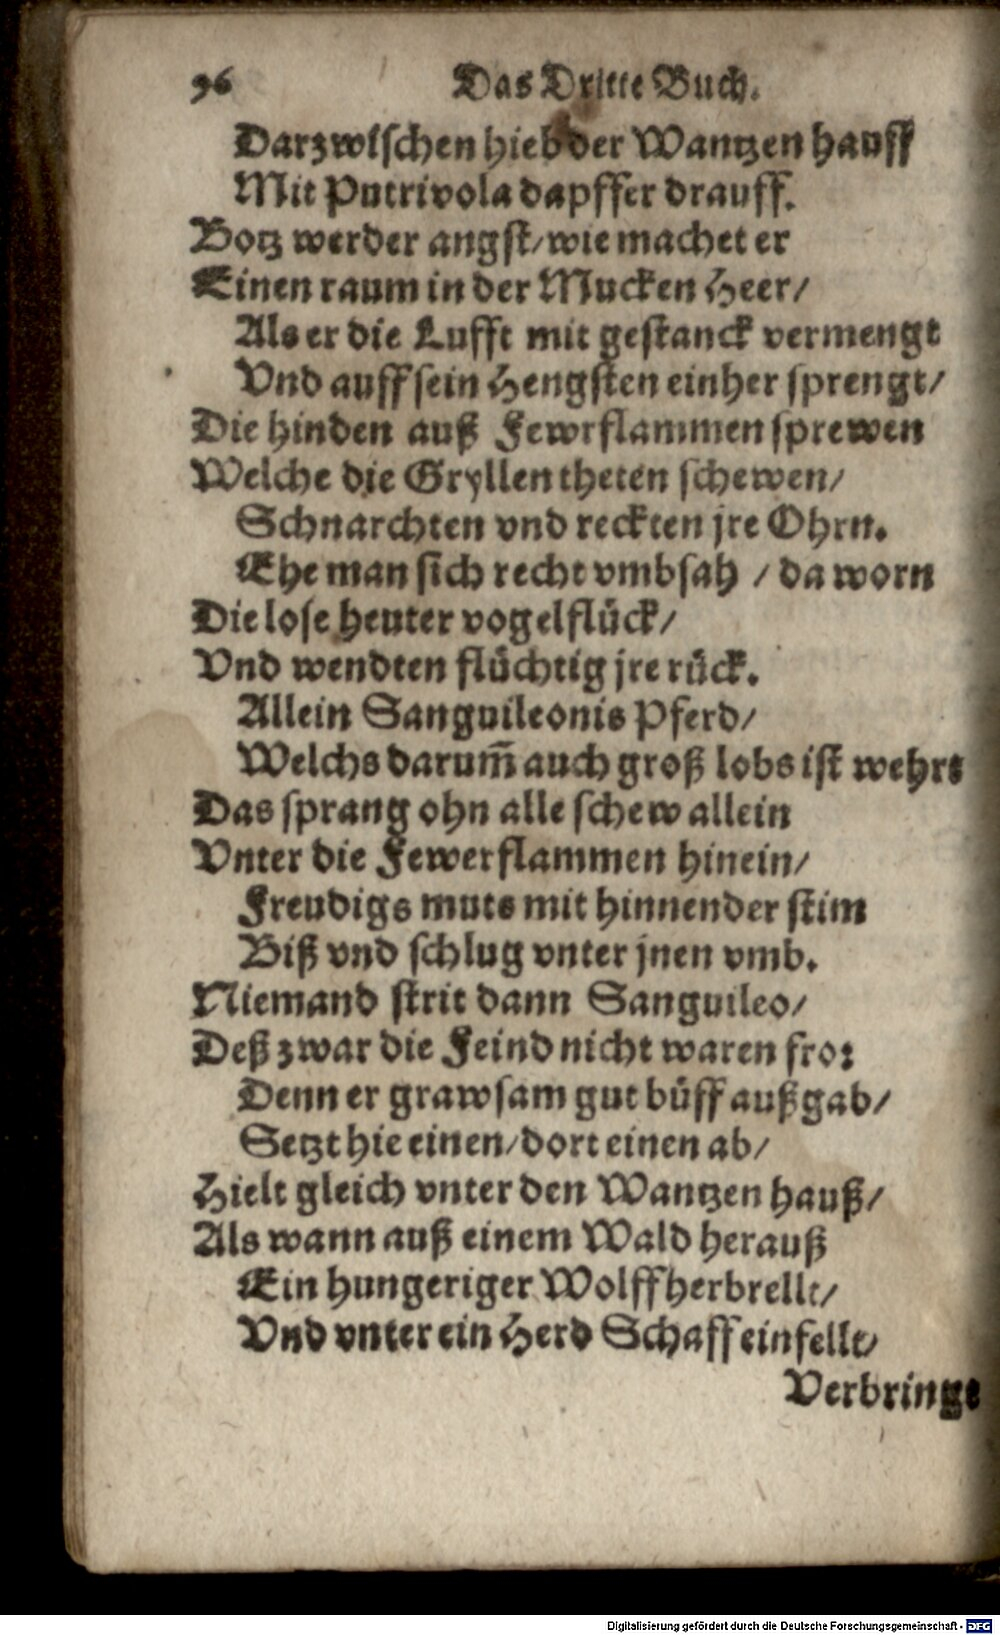 96 Das Dritte Buch.
Darzwischen hieb der Wantzen hauff
Mit Putrivola dapffer drauff.
Botz werder angst/wie machet er
Einen raum in der Mucken Heer/
Als er die Lufft mit gestanck vermengt
Vnd auff sein Hengsten einher sprengt/
Die hinden auß Fewrflammen sprewen
Welche die Gryllen theten schewen/
Schnarchten vnd reckten jre Ohrn.
Ehe man sich recht vmbsah / da worn
Die lose heuter vogelflück/
Vnd wendten flüchtig jre rück.
Allein Sanguileonis Pferd/
Welchs darum̃ auch groß lobs ist wehrt
Das sprang ohn alle schew allein
Vnter die Fewerflammen hinein/
Freudigs muts mit hinnender stim
Biß vnd schlug vnter jnen vmb.
Niemand strit dann Sanguileo/
Deß zwar die Feind nicht waren fro:
Denn er grawsam gut büff außgab/
Setzt hie einen/dort einen ab/
Hielt gleich vnter den Wantzen hauß/
Als wann auß einem Wald herauß
Ein hungeriger Wolff herbrellt/
Vnd vnter ein Herd Schaff einfellt/
Verbringt
Digitalisierung gefördert durch die Deutsche Forschungsgemeinschaft - DFG